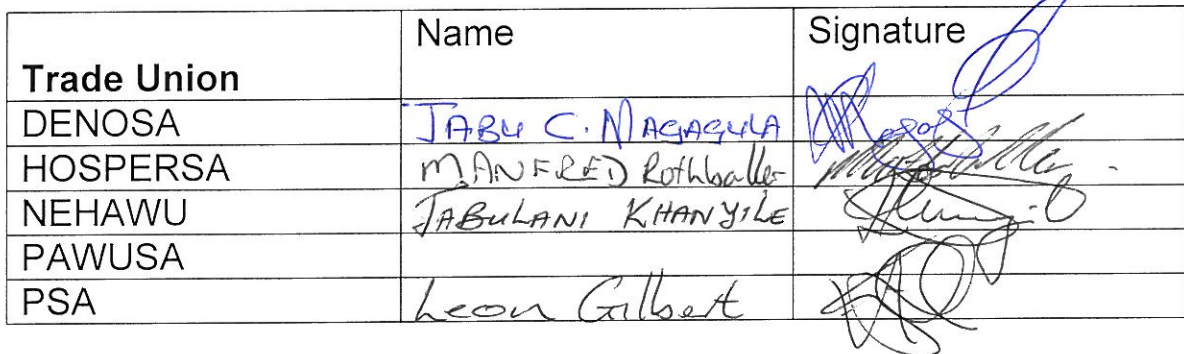 Name Signature
Trade Union
DENOSA JABU C. MAGAGULA
HOSPERSA MANFRED Rothballer
NEHAWU JABULANI KHANYILE
PAWUSA
PSA Leon Gilbert